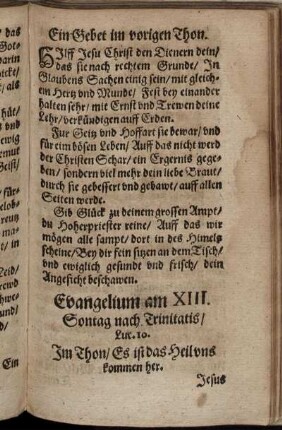 das
Got-
darin
/ als
hût/
vnd
ewig
emut
Geist/
für-
elob-
reutz
man-
/ in
Leid/
rewd
hwe-
vnd/
Ein
Ein Gebet im vorigen Thon.
HIlff Jesu Christ den Dienern dein/
das sie nach rechtem Grunde/ In
Glaubens Sachen einig sein/ mit gleich-
em Hertz vnd Munde/ Fest bey einander
halten sehr/ mit Ernst vnd Trewen deine
Lehr/ verkündigen auff Erden.
Für Geitz vnd Hoffart sie bewar/ vnd
für eim bösen Leben/ Auff das nicht werd
der Christen Schar/ ein Ergernis gege-
ben/ sondern viel mehr dein liebe Braut/
durch sie gebessert vnd gebawt/ auff allen
Seiten werde.
Gib Glück zu deinem grossen Ampt/
du Hoherpriester reine/ Auff das wir
mögen alle sampt/ dort in des Himels
scheine/ Bey dir fein sitzen an dem Tisch/
vnd ewiglich gesund vnd frisch/ dein
Angesicht beschawen.
Evangelium am XIII.
Sontag nach Trinitatis/
Luc. 10.
Im Thon/ Es ist das Heil vns
kommen her.
Jesus